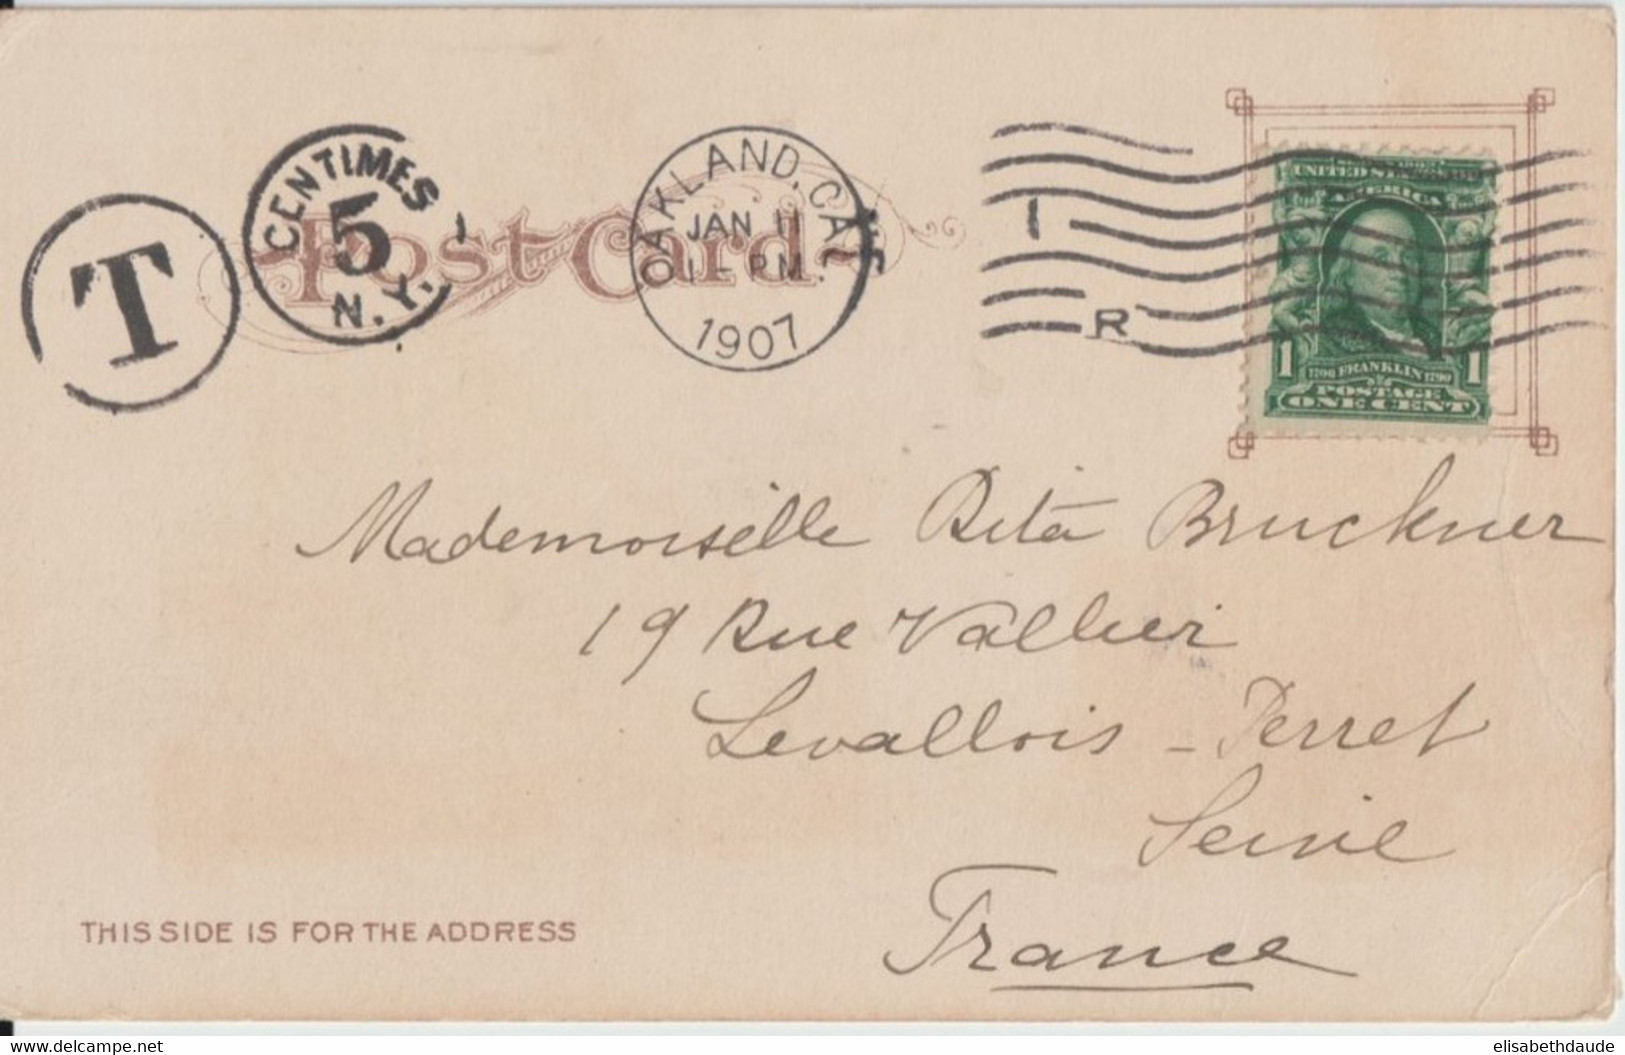 CENTIMES
5
N.Y.
T
Post Card
OAKLAND, CAL
JAN 11
1-PM
1907
1
R
UNITED STATES
AMERICA
1 1706 FRANKLIN 1790 1
POSTAGE
ONE CENT
Mademoiselle Rita Bruckner
19 Rue Vallier
Levallois - Perret
Seine
France
THIS SIDE IS FOR THE ADDRESS
delcampe.net
elisabethdaude